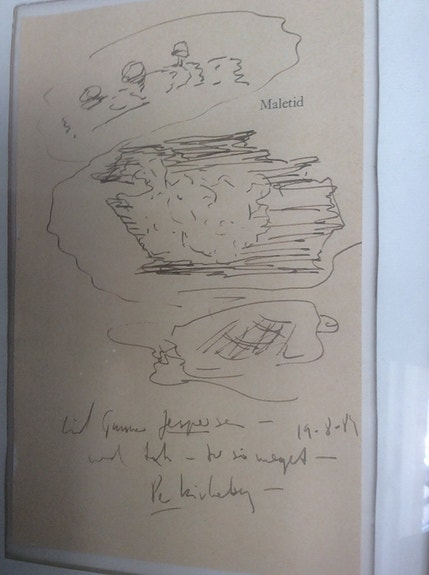 Maletid
Til Gunnar Jespersen —
med tak – for så meget —
Per Kirkeby —